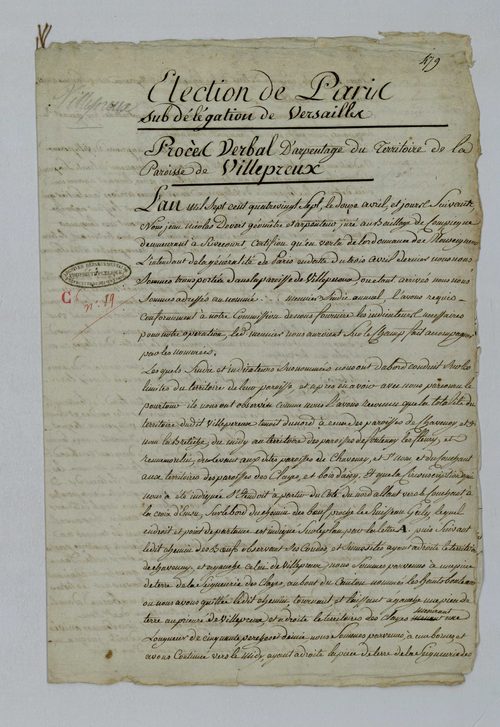 479
Villepreux
Election de Paris
subdélégation de Versailles
Procès Verbal D'arpentage du Territoire de la
Paroisse de Villepreux
L'an mil Sept cent quatrevingt Sept, le douze avril, et jours Suivants
Nous jean nicolas Dovet géomètre et arpenteur juré au Bailliage de Compiegne
demeurant à Rivecourt Certifions qu'en vertu de l'ordonnance de
L'intendant de la généralité de Paris en datte du trois avril dernier nous nous
Sommes transportés dans la paroisse de Villepreux Ou etant arrivés nous nous
Sommes adressés au nommé meunier Sindic annuel, L'avons requis
Conformément à notre Commission de nous fournir les indicateurs nécessaires
pour notre opération, led. meunier nous auroient Sur le Champ fait accompagner
par les nommés
Lesquels Sindic et indicateurs Susnommés nous ont d'abord conduit Sur les
limites du territoire de leur paroisse et après en avoir avec nous parcouru le
pourtour ils nous ont observés comme nous l'avons reconnu que la totalité du
territoire dudit Villepreux tenoit du nord à ceux des paroisses de Chavenay et
la Bretèche, du midy au territoire des paroisses de fontenay les fleury, et
rennemoulin, du levant auxdites paroisses de Chavenay, et St nom et du Couchant
aux territoires des paroisses des Clayes, et bois d'arcy. Et que la circonscription qui
nous a été indiquée S'étendoit à partir du Côté du nord allant vers le Couchant à
la croix Sur le bord du chemin des bœufs proche le Ruisseau lequel
endroit et point de partance est indiqué Sur le plan par la lettre A, puis Suivant
ledit chemin des Bœufs observant Ses Coudes et Sinuosités ayant à droite le territoire
de chavenay, et à gauche celui de Villepreux nous Sommes parvenus à une pièce
de terre de la Seigneurie des Clayes au bout du Canton nommé les hauts bonheurs
ou nous avons quitté ledit chemin, tournant et laissant à gauche une pièce de
terre au prieuré de Villepreux et à droite le territoire des Clayes mesurant une
Longueur de cinquante perches et demie nous Sommes parvenus à une borne et
avons Continué vers le midy, ayant à droite la pièce de terre de la Seigneurie des